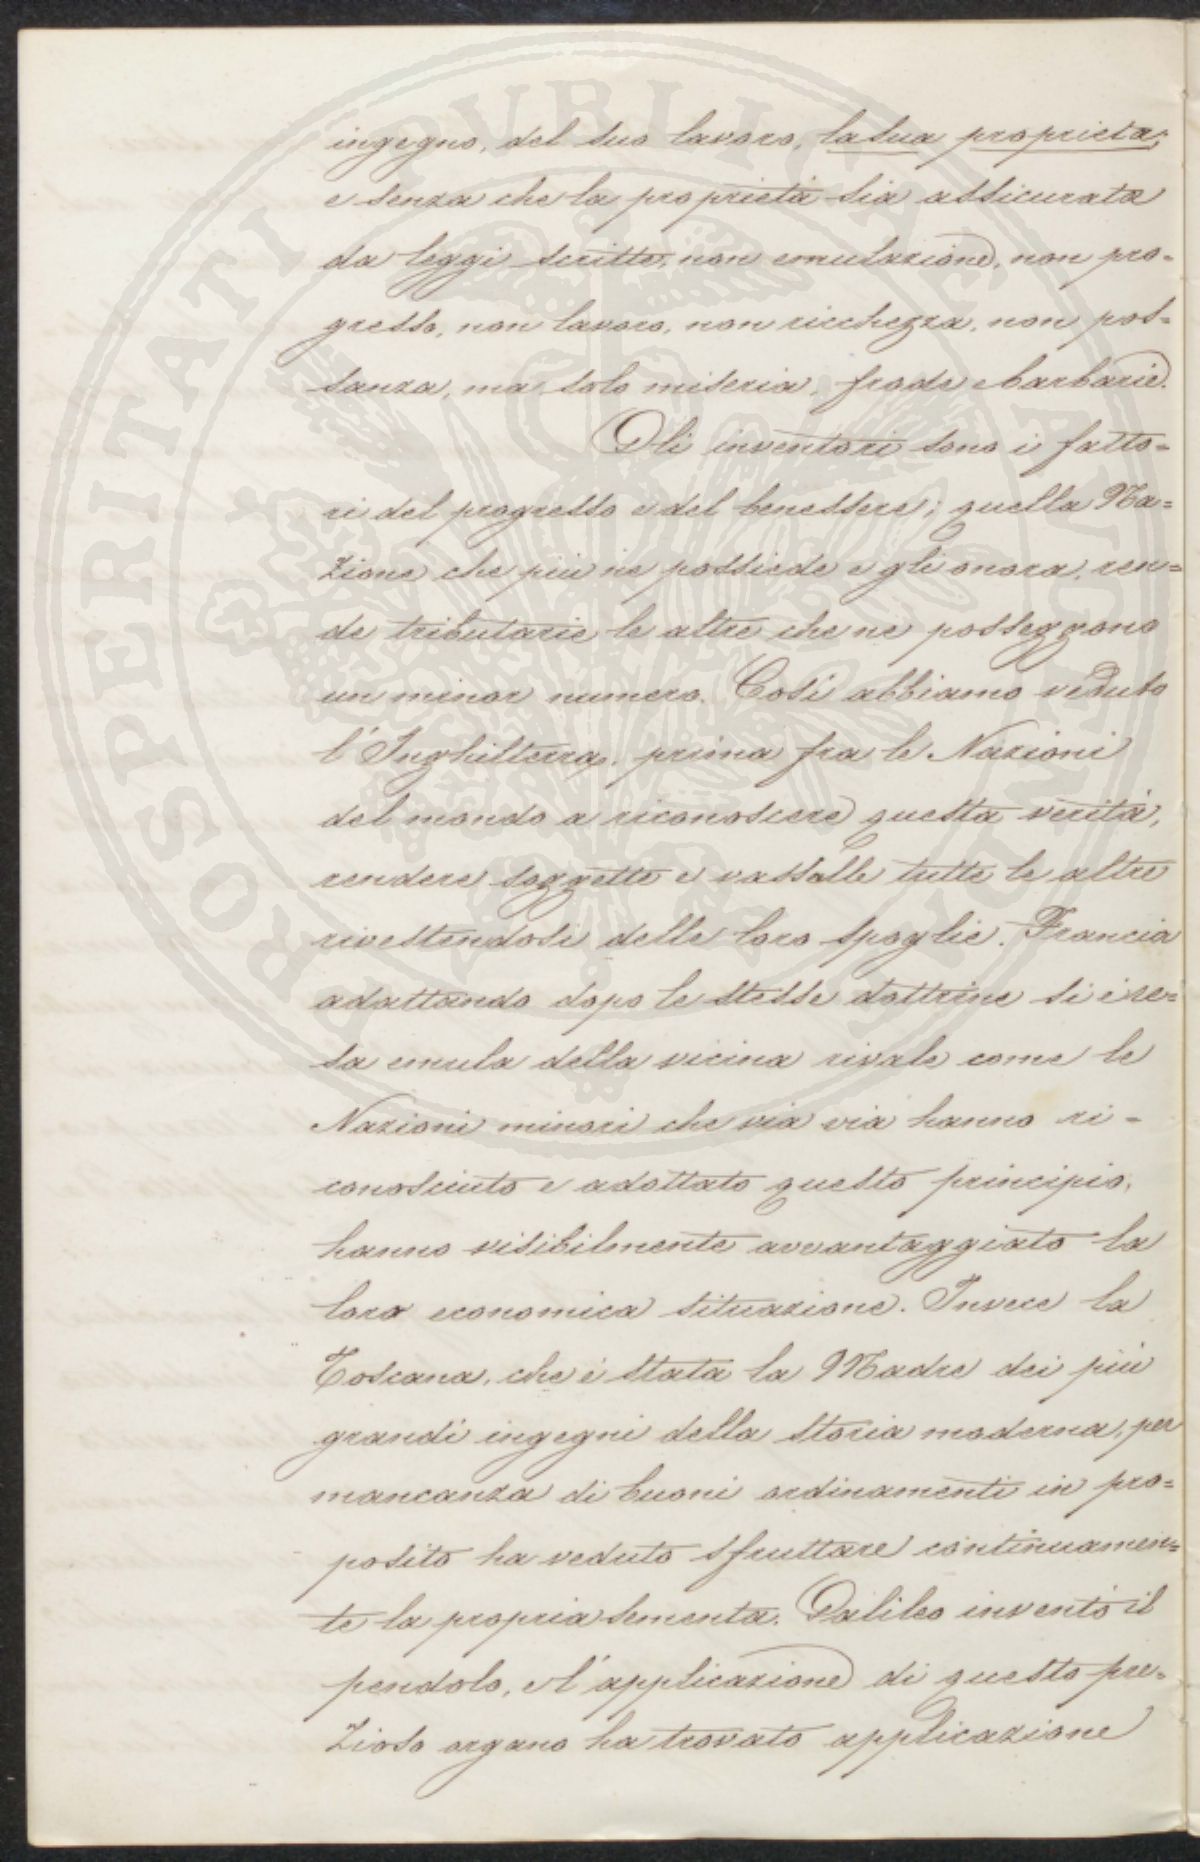 ingegno, del suo lavoro, la sua proprietà;
e senza che la proprietà sia assicurata
da leggi scritte, non emulazione, non pro=
gresso, non lavoro, non ricchezza, non pos=
sanza, ma solo miseria, frode e barbarie.
Gli inventori sono i fatto=
ri del progresso e del benessere; quella Na=
zione che più ne possiede e gli onora, ren=
de tributarie le altre che ne posseggono
un minor numero. Così abbiamo veduto
l'Inghilterra, prima fra le Nazioni
del mondo a riconoscere questa verità,
rendere soggette e vassalle tutte le altre
rivestendosi delle loro spoglie. Francia
adottando dopo le stesse dottrine si è re=
sa emula della vicina rivale come le
Nazioni minori che via via hanno ri=
conosciuto e adottato questo principio,
hanno visibilmente avvantaggiato la
loro economica situazione. Invece la
Toscana, che è stata la Madre dei più
grandi ingegni della storia moderna, per
mancanza di buoni ordinamenti in pro=
posito ha veduto sfruttare continuamen=
te la propria sementa. Galileo inventò il
pendolo, e l'applicazione di questo pre=
zioso organo ha trovato applicazione
PROSPERITATI PVBLICAE AVGENDAE